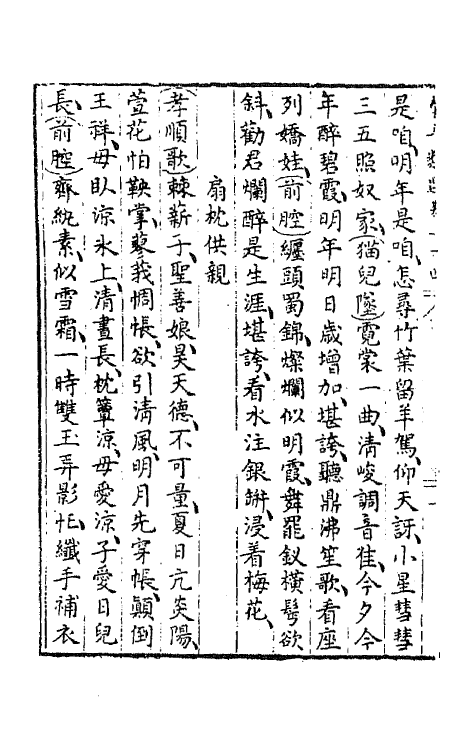 是咱、明年是咱、怎尋竹葉留羊駕、仰天訝、小星彗彗
三五照奴家、（猫兒墜）霓裳一曲、清峻調音佳、今夕今
年醉碧霞、明年明日歲增加、堪誇、聽鼎沸笙歌、看座
列嬌娃、（前腔）纏頭蜀錦、燦爛似明霞、舞罷釵橫鬢欲
斜、勸君爛醉是生涯、堪誇、看水注銀缾、浸着梅花、
扇枕供親
（孝順歌）棘薪子、聖善娘、昊天德、不可量、夏日亢炎陽、
萱花怕鞅掌、蓼莪惆悵、欲引清風、明月先穿帳、顛倒
王祥、毋臥涼氷上、清晝長、枕簟涼、母愛涼、子愛日兒
長、（前腔）齊紈素、似雪霜、一時雙玉弄影忙、纖手補衣